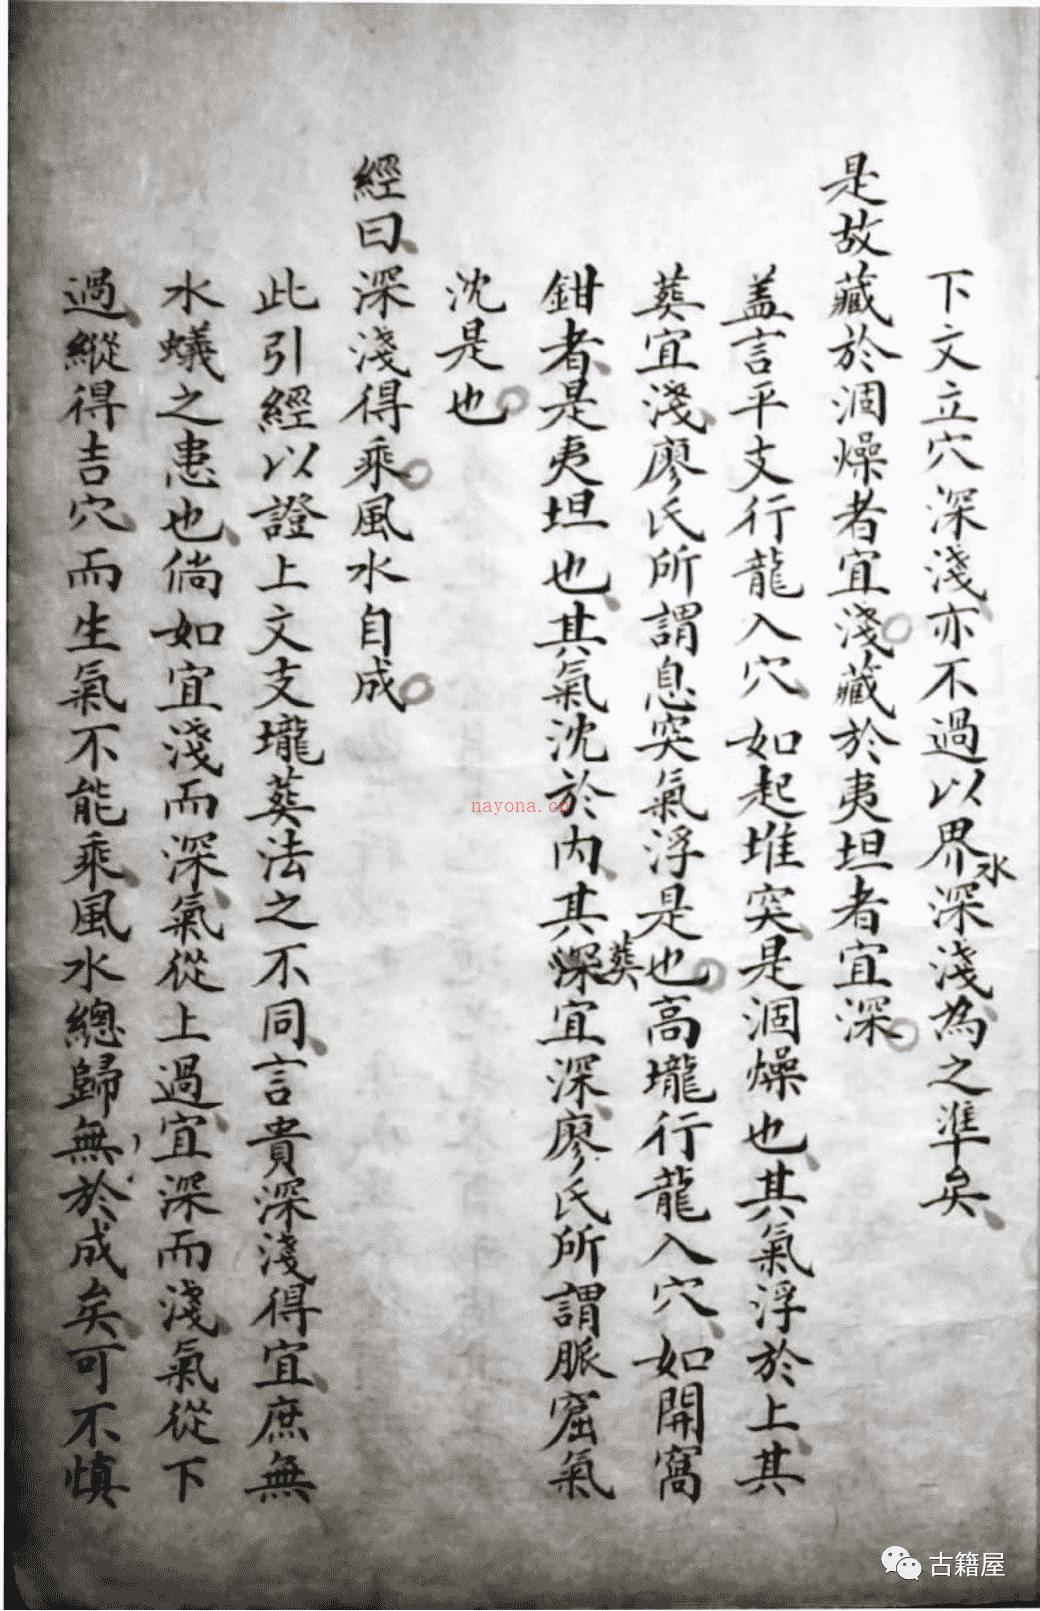 下文立穴深淺亦不過以界水深淺為之準矣
是故藏於涸燥者宜淺藏於夷坦者宜深
盖言平支行龍入穴如起堆突是涸燥也其氣浮於上其
葬宜淺廖氏所謂息突氣浮是也高壠行龍入穴如開窩
鉗者是夷坦也其氣沈於內其葬宜深廖氏所謂脈窟氣
沈是也
經曰深淺得乘風水自成
此引經以證上文支壠葬法之不同言貴深淺得宜庶無
水蟻之患也倘如宜淺而深氣從上過宜深而淺氣從下
過縱得吉穴而生氣不能乘風水總歸無於成矣可不慎
nayona.cn
古籍屋